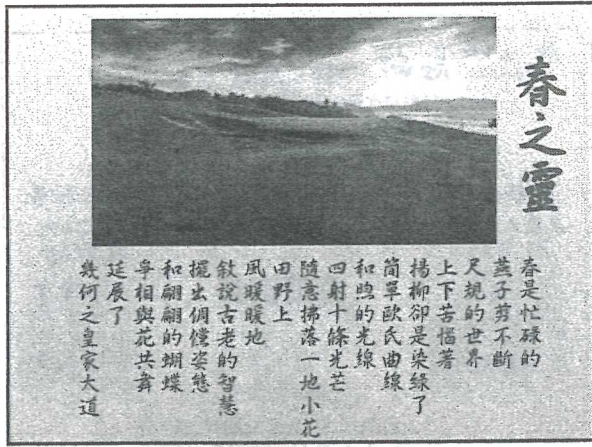 春之靈
春是忙碌的
燕子剪不斷
尺規的世界
上下苦惱著
楊柳卻是染綠了
簡單歐氏曲線
和煦的光線
四射十條光芒
隨意拂落一地小花
田野上
風暖暖地
敘說古老的智慧
擺出倜儻姿態
和翩翩的蝴蝶
爭相與花共舞
延展了
幾何之皇家大道